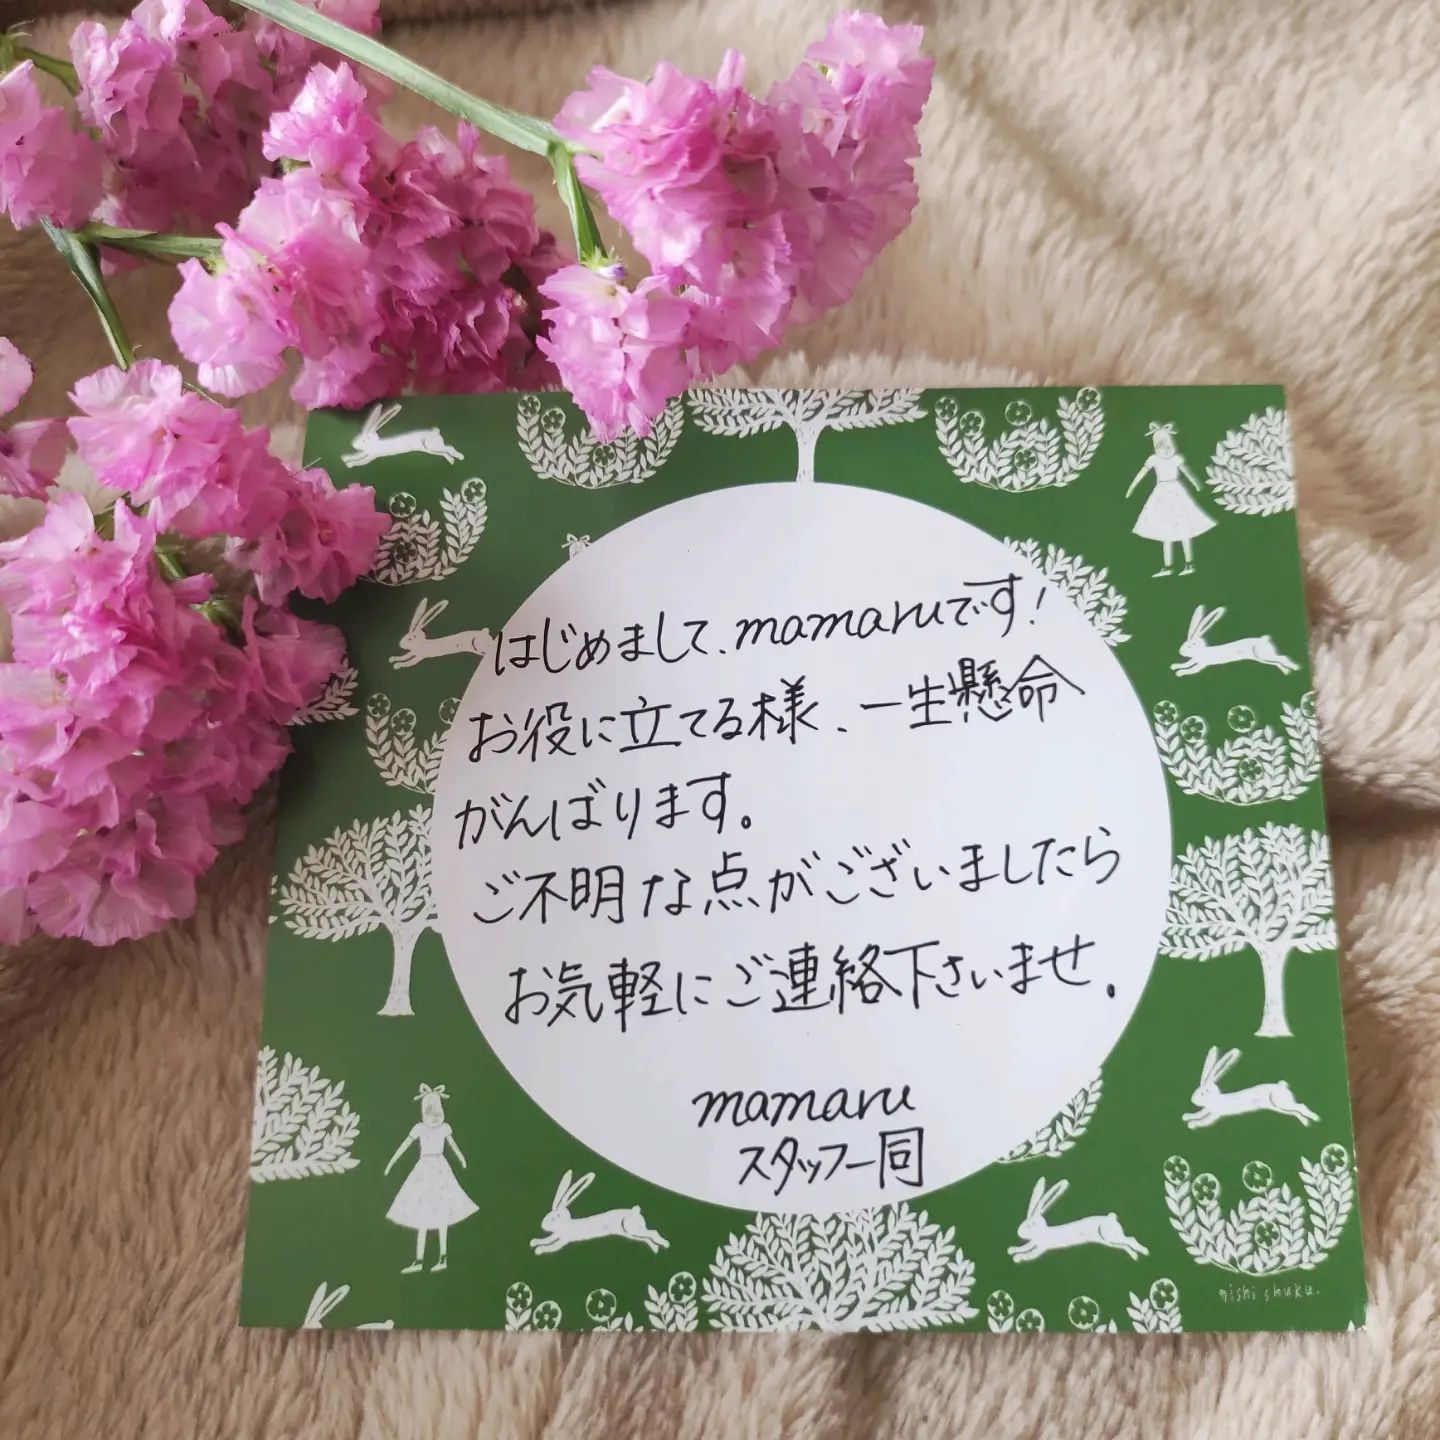 はじめまして、mamaruです!
お役に立てる様、一生懸命
がんばります。
ご不明な点がございましたら
お気軽にご連絡下さいませ。
mamaru
スタッフ一同
nishi shuku.